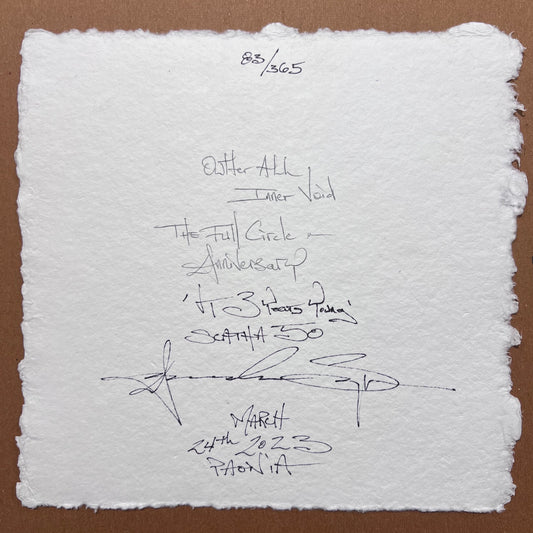 83/365
Outter All
Inner Void
The Full Circle
Anniversary
3 Years Young'
50
MARCH
24th 2023
PAONIA